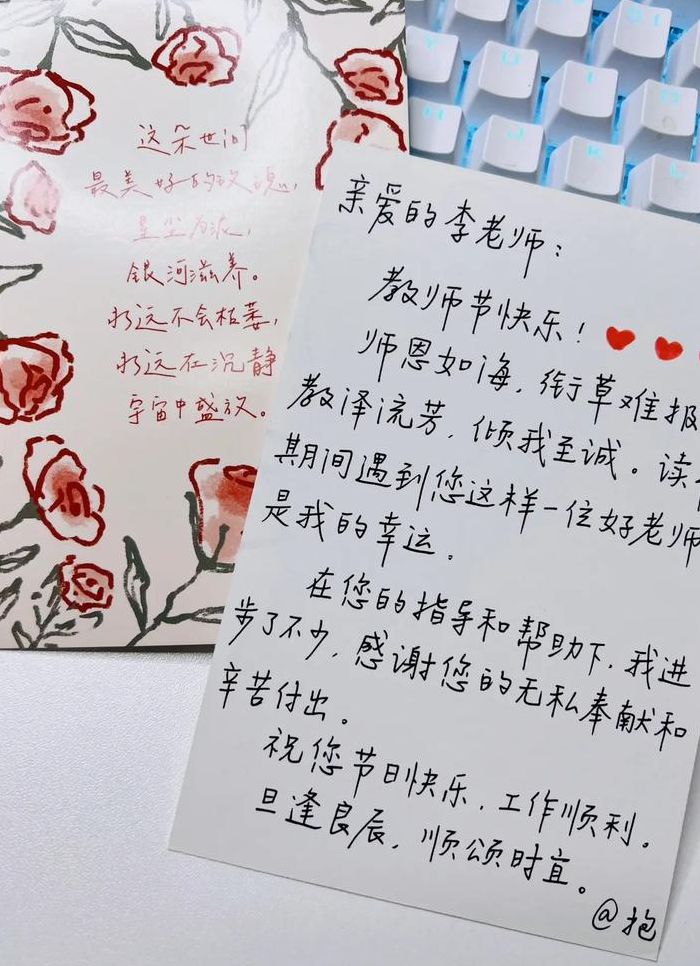 这朵世间
最美好的玫瑰,
星尘为泥,
银河滋养。
永远不会枯萎,
永远在沉静
宇宙中盛放。
亲爱的李老师:
教师节快乐!
师恩如海,衔草难报
教泽流芳,倾我至诚。读
期间遇到您这样一位好老师
是我的幸运。
在您的指导和帮助下,我进
步了不少,感谢您的无私奉献和
辛苦付出。
祝您节日快乐,工作顺利。
旦逢良辰,顺颂时宜。
@抱